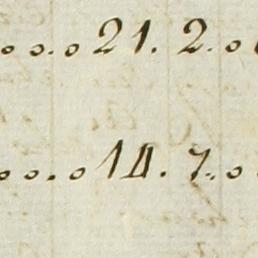 ..o.o 21. 2..o
..o..o 14. 7..o